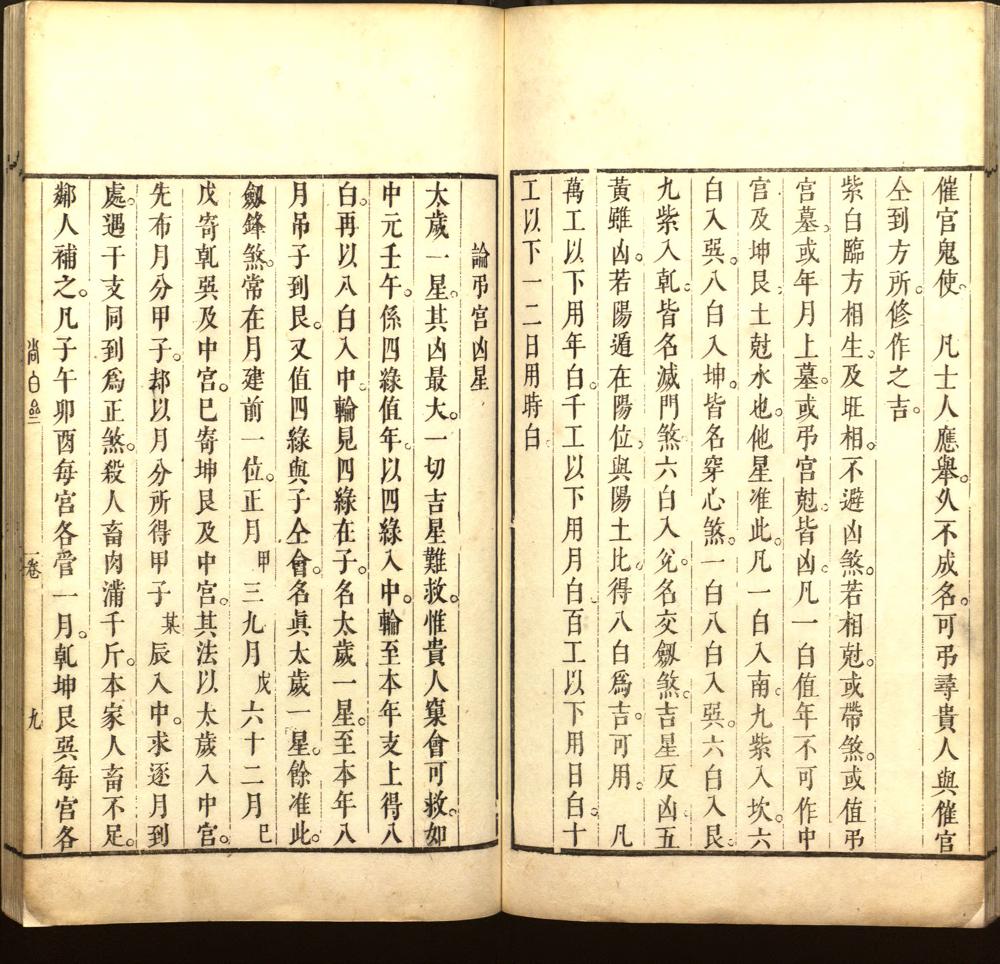 催官鬼使　凡士人應舉。久不成名。可弔尋貴人與催官
仝到方所。修作之吉。
紫白臨方相生。及旺相。不避凶煞。若相尅。或帶煞。或值弔
宮墓。或年月上墓。或弔宮尅。皆凶。凡一白值年不可作中
宮及坤艮。土尅水也。他星准此。凡一白入南。九紫入坎。六
白入巽。八白入坤。皆名穿心煞。一白八白入巽。六白入艮。
九紫入乹。皆名滅門煞。六白入兊。名交劔煞。吉星反凶。五
黃雖凶。若陽遁在陽位。與陽土比。得八白爲吉。可用。　凡
萬工以下用年白。千工以下用月白。百工以下用日白。十
工以下一二日用時白。
論弔宮凶星
太歲一星。其凶最大。一切吉星難救。惟貴人窠會可救。如
中元壬午。係四綠值年。以四綠入中。輪至本年支上得八
白。再以八白入中。輪見四綠在子。名太歲一星。至本年八
月弔子到艮。又值四綠與子仝會。名眞太歲一星。餘准此。
劔鋒煞。常在月建前一位。正月甲三九月戊六十二月巳
戊寄乹巽及中宮。巳寄坤艮及中宮。其法以太歲入中宮。
先布月分甲子。却以月分所得甲子某辰入中。求逐月到
處。遇干支同到爲正煞。殺人畜肉滿千斤。本家人畜不足。
鄰人補之。凡子午卯酉每宮各管一月。乹坤艮巽每宮各
尚白齋
一卷
九